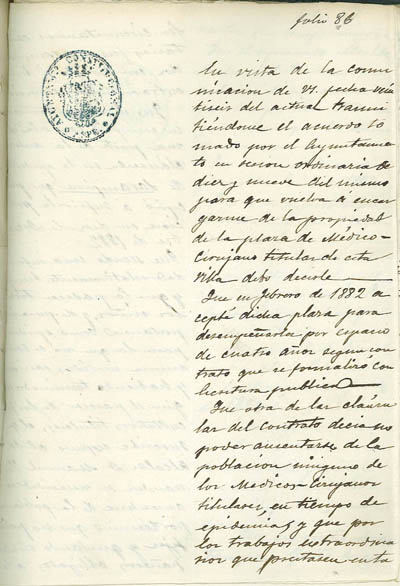 folio 86
AYUNTAMIENTO CONSTITUCIONAL
ASPE
En vista de la comu
nicacion de V. fecha vein
tiseis del actual trasmi
tiéndome el acuerdo to
mado por el Ayuntamien
to en secion ordinaria de
diez y nueve del mismo
para que vuelva á encar
garme de la propiedad
de la plaza de Médico-
Cirujano titular de esta
Villa debo decirle
Que en febrero de 1882 a
cepté dicha plaza para
desempeñarla por espacio
de cuatro años segun con
trato que se formalizó con
Escritura publica
Que otra de las cláusu
las del contrato decia no
poder ausentarse de la
poblacion ninguno de
los Medicos-Cirujanos
titulares, en tiempo de
epidemias y que por
los trabajos extraordina
rios que prestasen en ta